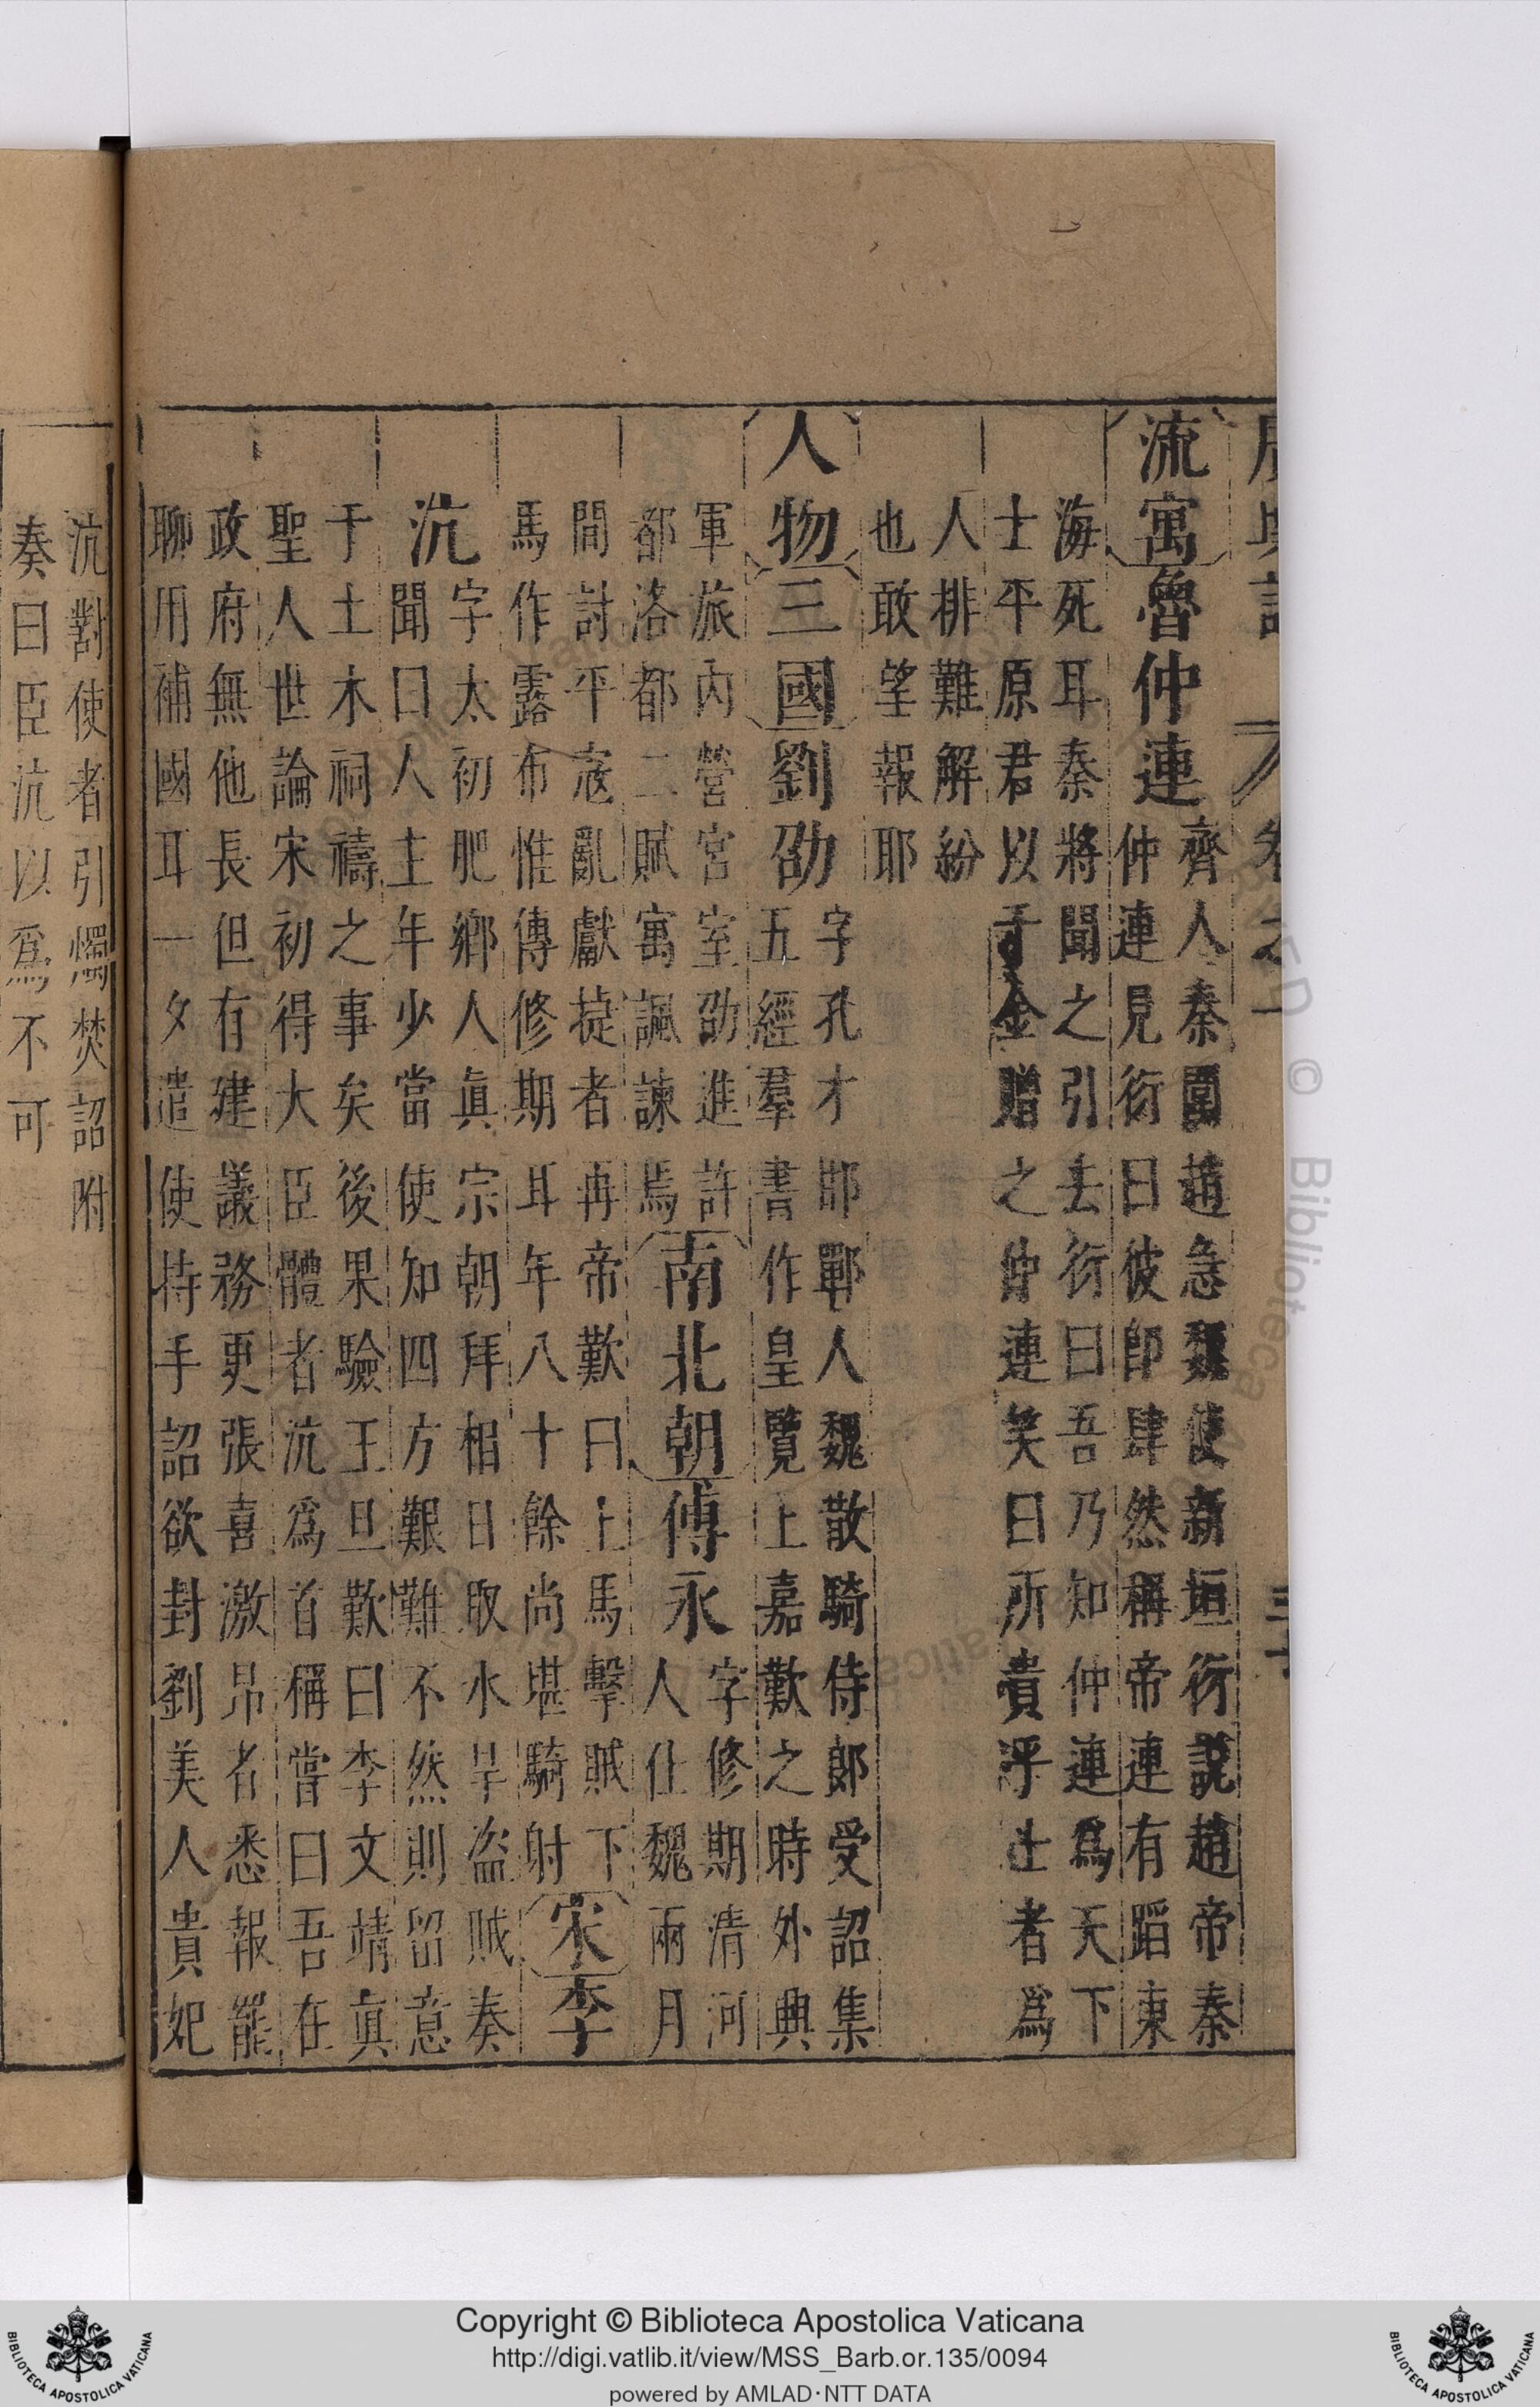 流寓魯仲連
齊人秦圍趙急魏使新垣衍說趙帝秦
仲連見衍曰彼即肆然稱帝連有蹈東
海死耳秦將聞之引去衍曰吾乃知仲連爲天下
士平原君以千金贈之仲連笑曰所貴乎士者爲
人排難解紛
也敢望報耶
人物三國劉劭
字孔才邯鄲人魏散騎侍郎受詔集
五經羣書作皇覽上嘉歎之時外典
軍旅內營宮室劭進許
都洛都二賦寓諷諫焉
南北朝傅永
字修期清河
人仕魏兩月
間討平寇亂獻㨗者再帝歎曰上馬擊賊下
馬作露布惟傅修期耳年八十餘尚堪騎射
宋李
沆
字太初肥鄉人眞宗朝拜相日取水旱盜賊奏
聞曰人主年少當使知四方艱難不然則留意
于土木祠禱之事矣後果驗王旦歎曰李文靖眞
聖人世論宋初得大臣體者沆爲首稱嘗曰吾在
政府無他長但有建議務更張喜激昂者悉報罷
聊用補國耳一夕遣使持手詔欲封劉美人貴妃
沆對使者引燭焚詔附
奏曰臣沆以爲不可
Copyright © Biblioteca Apostolica Vaticana
http://digi.vatlib.it/view/MSS_Barb.or.135/0094
powered by AMLAD·NTT DATA
BIBLIOTECA APOSTOLICA VATICANA
BIBLIOTECA APOSTOLICA VATICANA